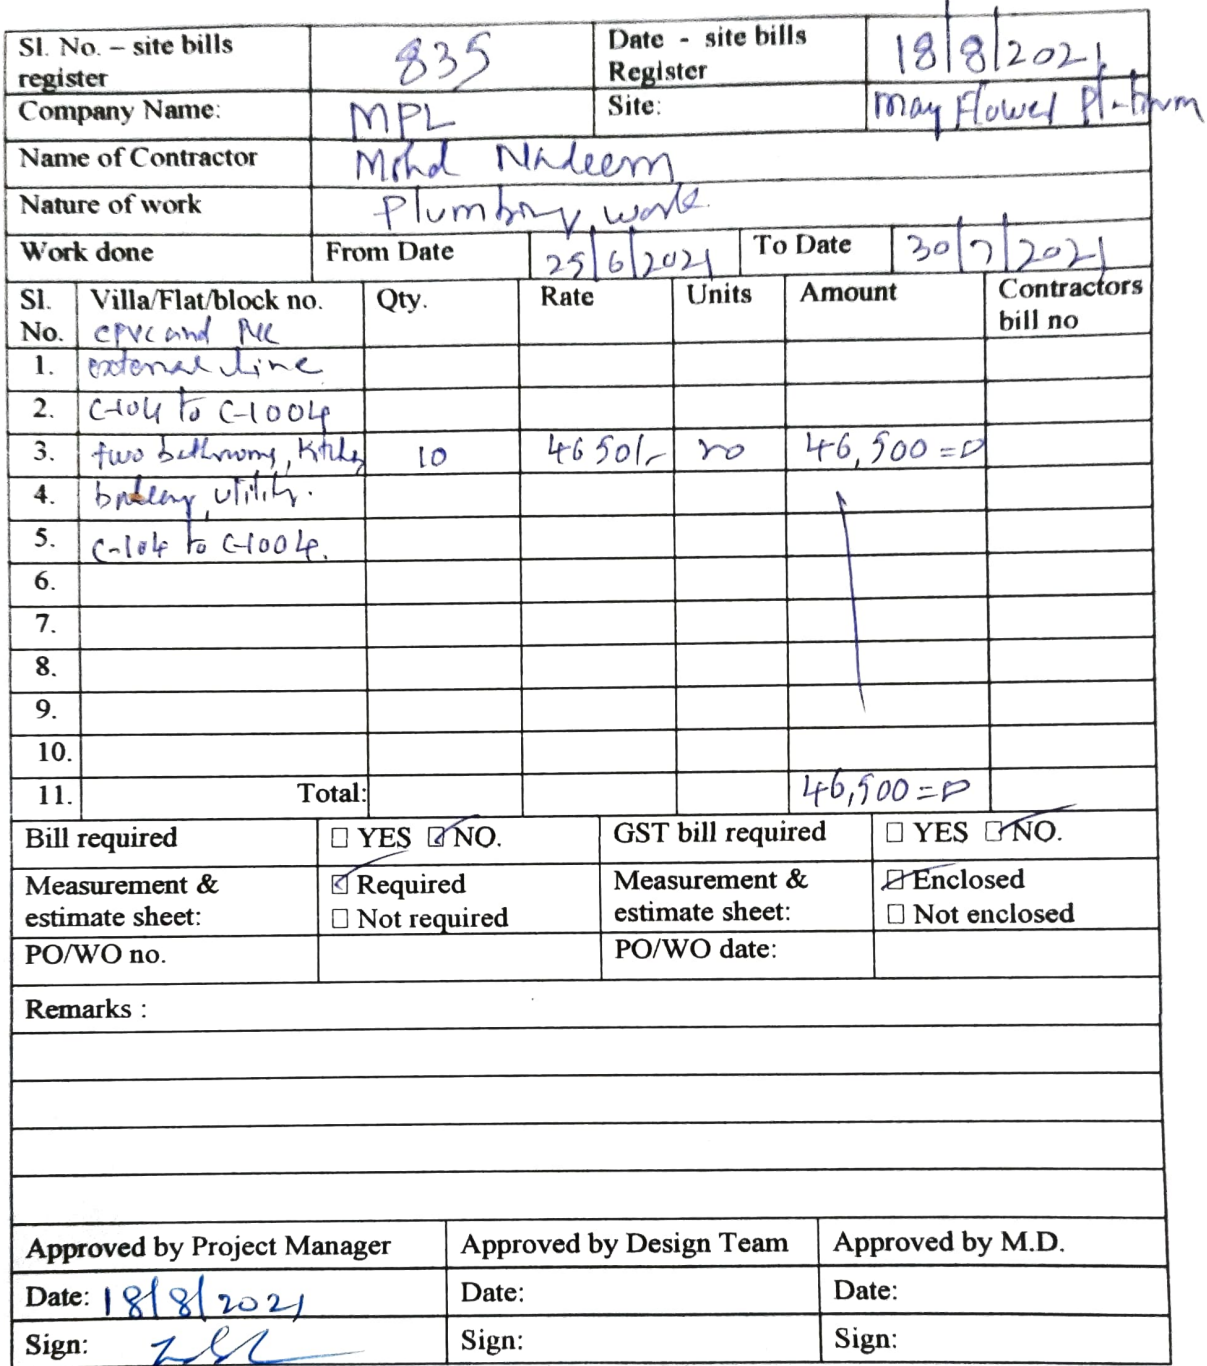 Sl. No. – site bills register 835 Date - site bills Register 18/8/2021
Company Name: MPL Site: May Flower Platinum
Name of Contractor Mohd Nadeem
Nature of work Plumbing work.
Work done From Date 25/6/2021 To Date 30/7/2021
Sl. No. Villa/Flat/block no. Qty. Rate Units Amount Contractors bill no
CPVC and PVC
1. external line
2. C-104 to C-1004
3. two bathrooms, Kitchen 10 4650/- no 46,500=00
4. balcony, utility.
5. C-104 to C-1004.
6.
7.
8.
9.
10.
11. Total: 46,500=00
Bill required ☐ YES ☑ NO. GST bill required ☐ YES ☑ NO.
Measurement & estimate sheet: ☑ Required ☐ Not required Measurement & estimate sheet: ☑ Enclosed ☐ Not enclosed
PO/WO no. PO/WO date:
Remarks :
Approved by Project Manager Approved by Design Team Approved by M.D.
Date: 18/8/2021 Date: Date:
Sign: Sign: Sign: